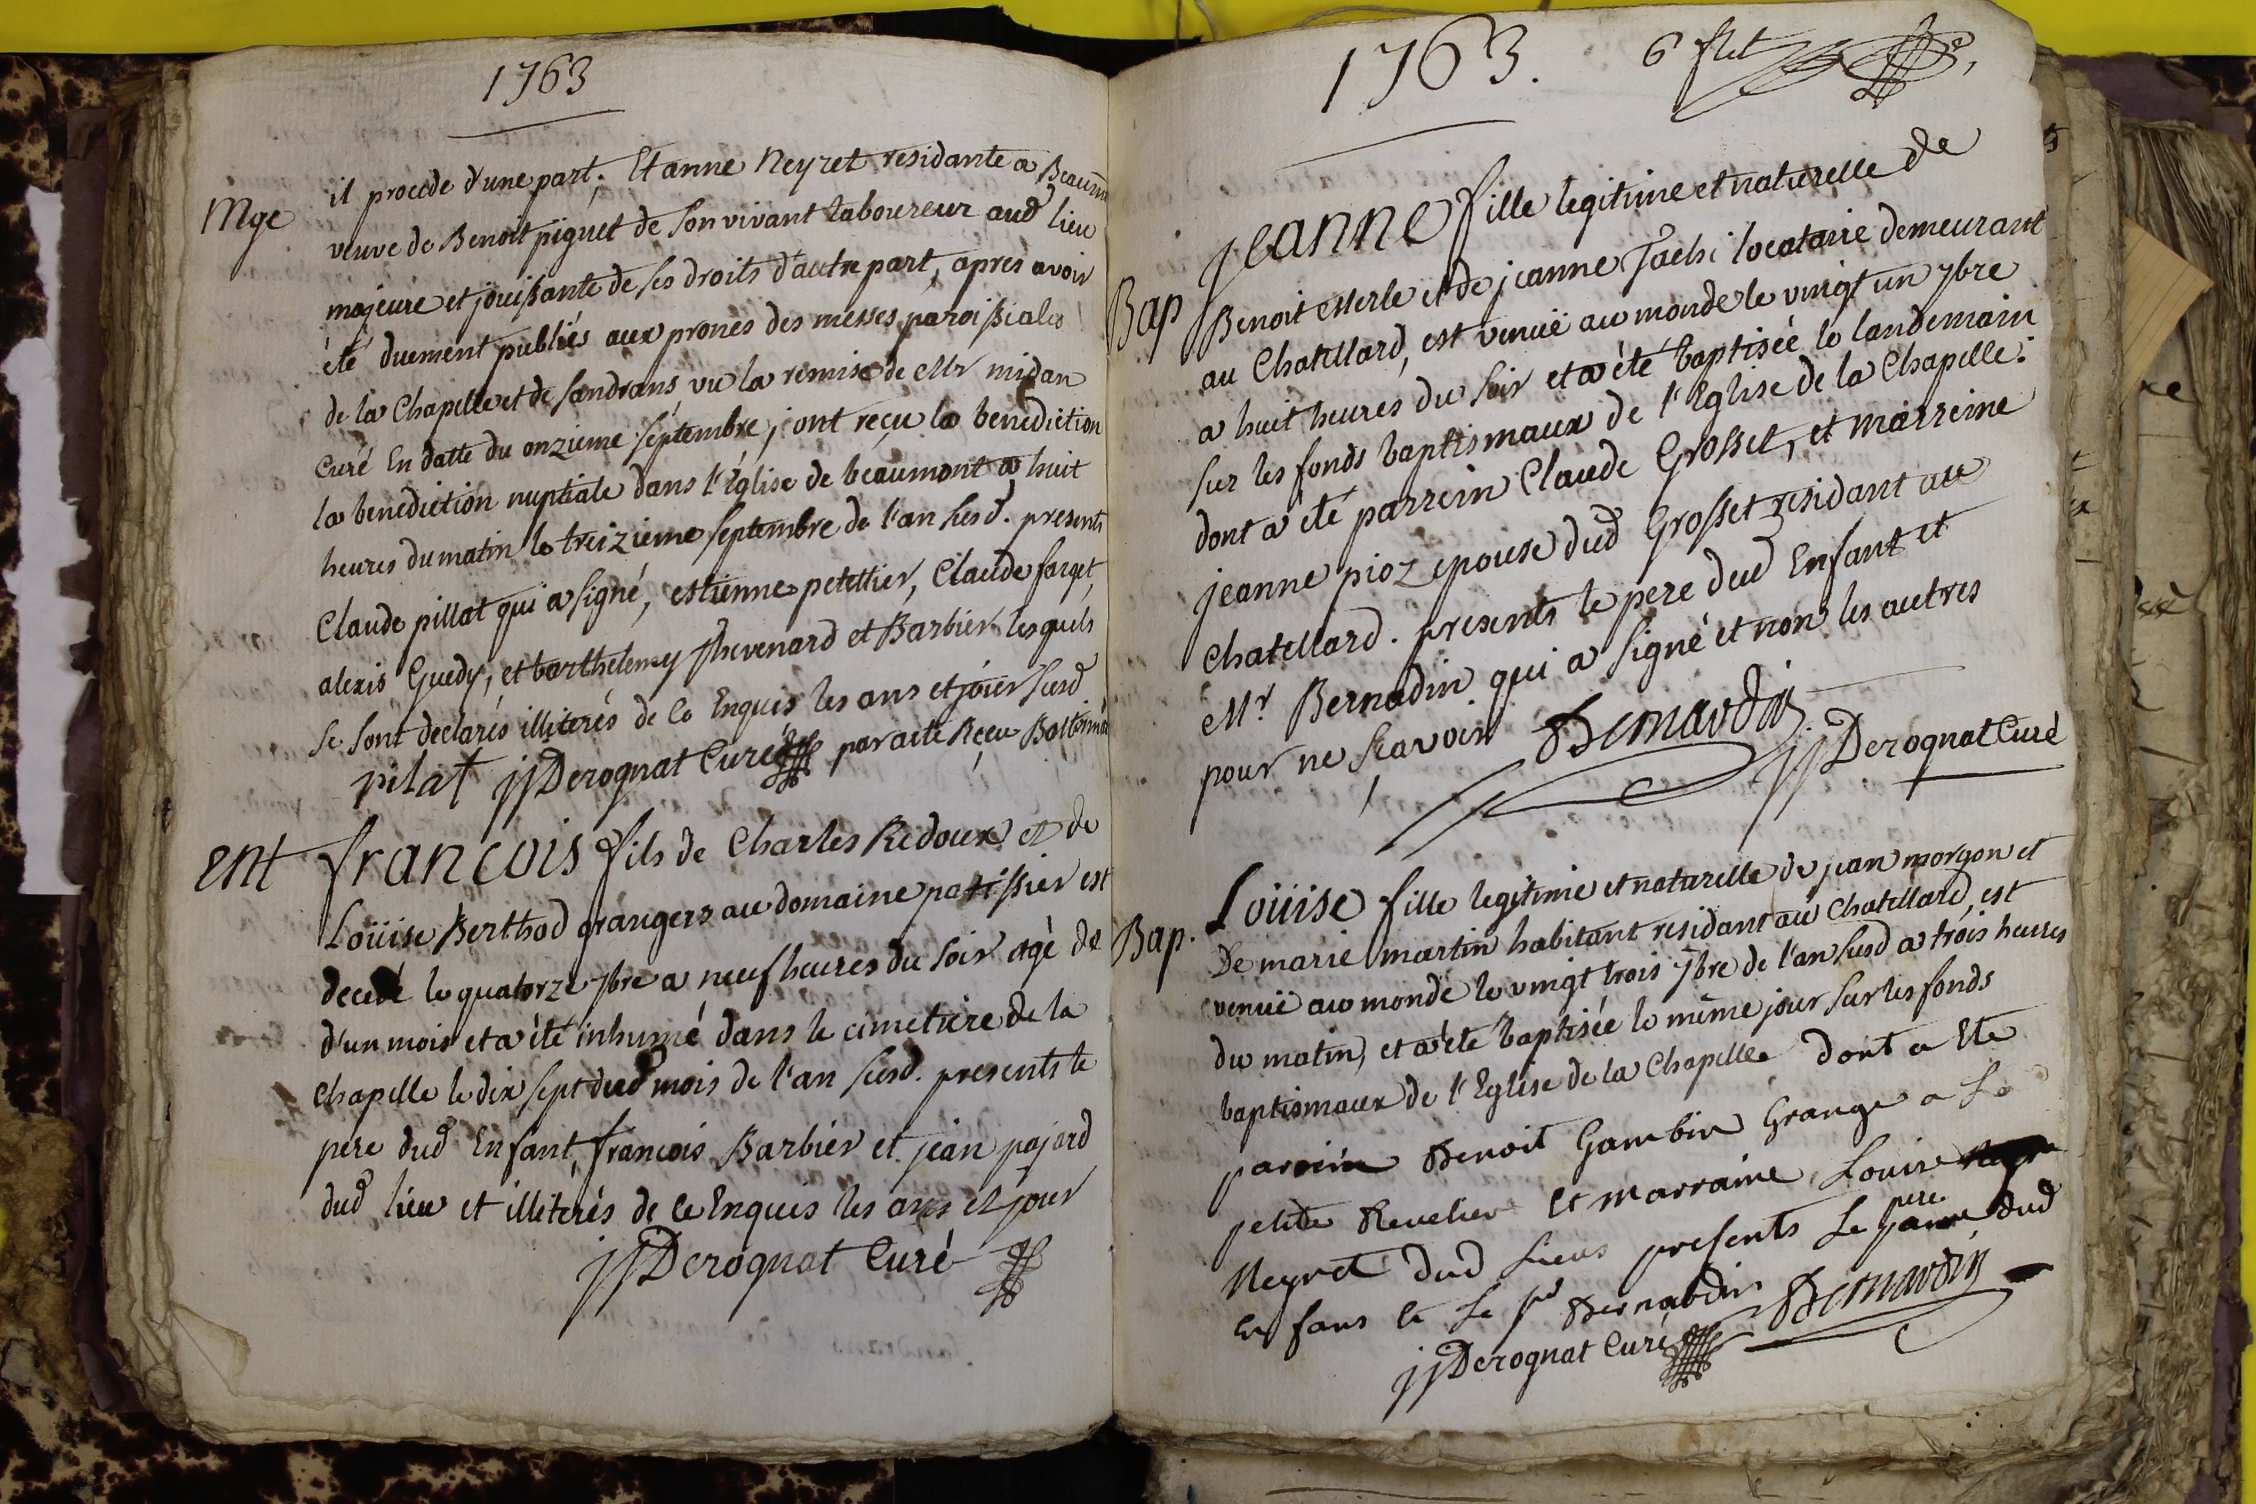 1763
Mge
il procede d'une part; Et anne Neyret residante a Beaumt
veuve de Benoit piguet de son vivant laboureur aud lieu
majeure et jouissante de ses droits d'autre part, apres avoir
été duement publiés aux prones des messes paroissiales
de la Chapelle et de sandrans, vu la remise de Mr midan
Curé En datte du onzieme septembre, ont reçu la benediction
la benediction nuptiale dans l'Eglise de beaumont a huit
heures du matin le treizieme septembre de l'an susd. presents
Claude pillat qui a signé, estienne petettier, Claude farget,
alexis Guedy, et barthelemy thevenard et Barbier lesquels
se sont declarés illiterés de ce Enquis les ans et jour susd
pilat jjDerognat Curé par acte Reçu
ent
francois fils de Charles Redoux et de
Loüise Berthod grangers au domaine patissier est
decedé le quatorze 7bre a neuf heures du soir agé de
d'un mois et a été inhumé dans le cimetiere de la
Chapelle le dix sept dud mois de l'an susd. presents le
pere dud Enfant, francois Barbier et jean pajard
dud lieu et illiterés de ce Enquis les ans et jour
jjDerognat Curé
1763. 6 flet
Bap
jeanne fille legitime et naturelle de
Benoit Merle et de jeanne locataire demeurant
au Chatellard, est venuë au monde le vingt un 7bre
a huit heures du soir et a été baptisée le landemain
sur les fonds baptismaux de l'Eglise de la Chapelle:
dont a été parrein Claude Grosset, et marreine
jeanne pioz epouse dud Grosset residant au
Chatellard. presents le pere dud Enfant et
Mr. Bernadin qui a signé et non les autres
pour ne scavoir Bernardin
jjDerognat Curé
Bap.
Loüise fille legitime et naturelle de jean morgon et
De marie martin habitant residant au Chatellard, est
venuë au monde le vingt trois 7bre de l'an susd a trois heures
du matin, et a été baptisée le même jour sur les fonds
baptismaux de l'Eglise de la Chapelle dont a Ete
parrein Benoit Gambin Grange a La
petite Revelier et marraine Louise
pere
Neyret dud Lieus presents Le dud
En fans et Le sr Bernardin Bernardin
jjDerognat Curé